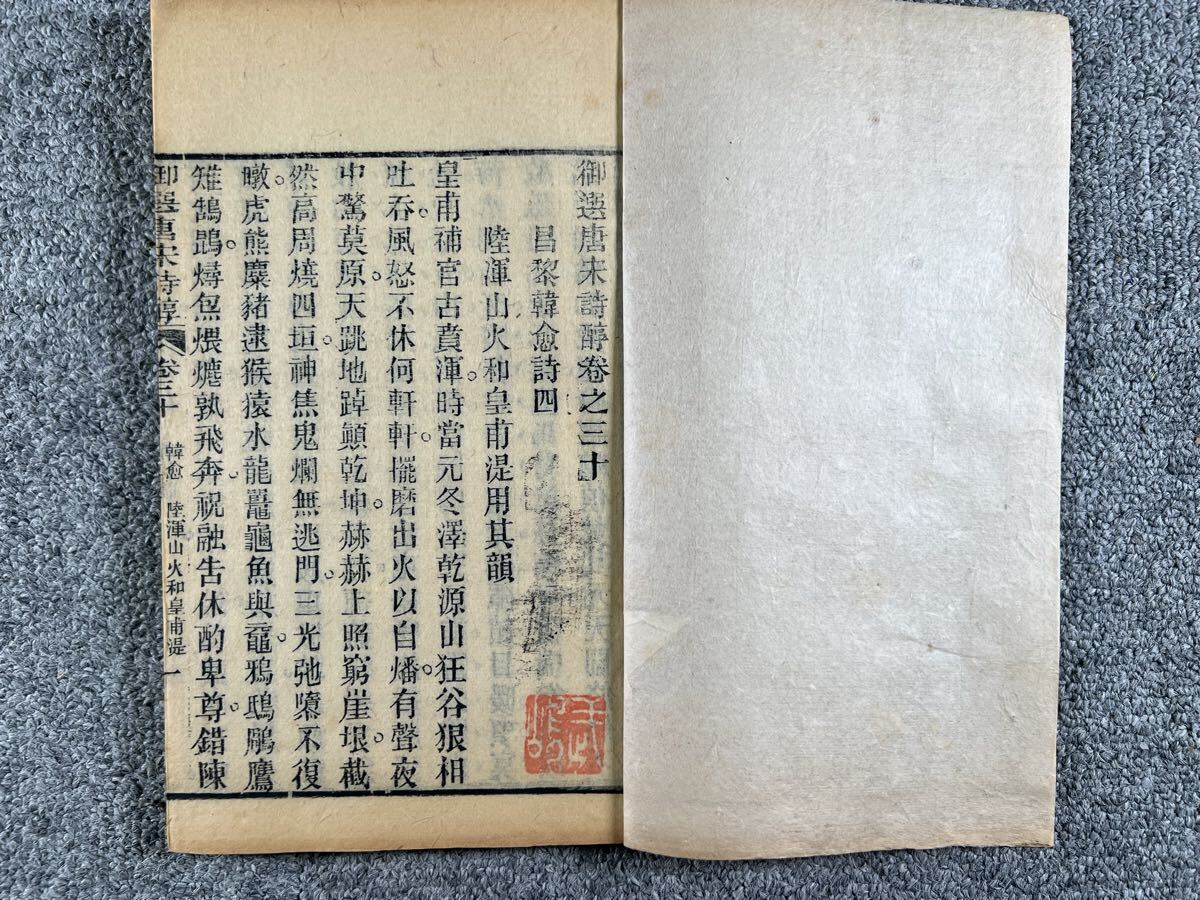 御選唐宋詩醇卷之三十
昌黎韓愈詩四
陸渾山火和皇甫湜用其韻
皇甫補官古賁渾。時當元冬澤乾源山狂谷狠相
吐吞。風怒不休何軒軒。擺磨出火以自燔。有聲夜
中驚莫原。天跳地踔顛乾坤。赫赫上照窮崖垠。截
然高周燒四垣。神焦鬼爛無逃門。三光弛隳不復
暾。虎熊麋豬逮猴猿。水龍鼉龜魚與黿。鴉鴟鵰鷹
雉鵠鵾。燖炰煨爊孰飛奔。祝融告休酌卑尊。錯陳
御選唐宋詩醇 卷三十 韓愈 陸渾山火和皇甫湜 一